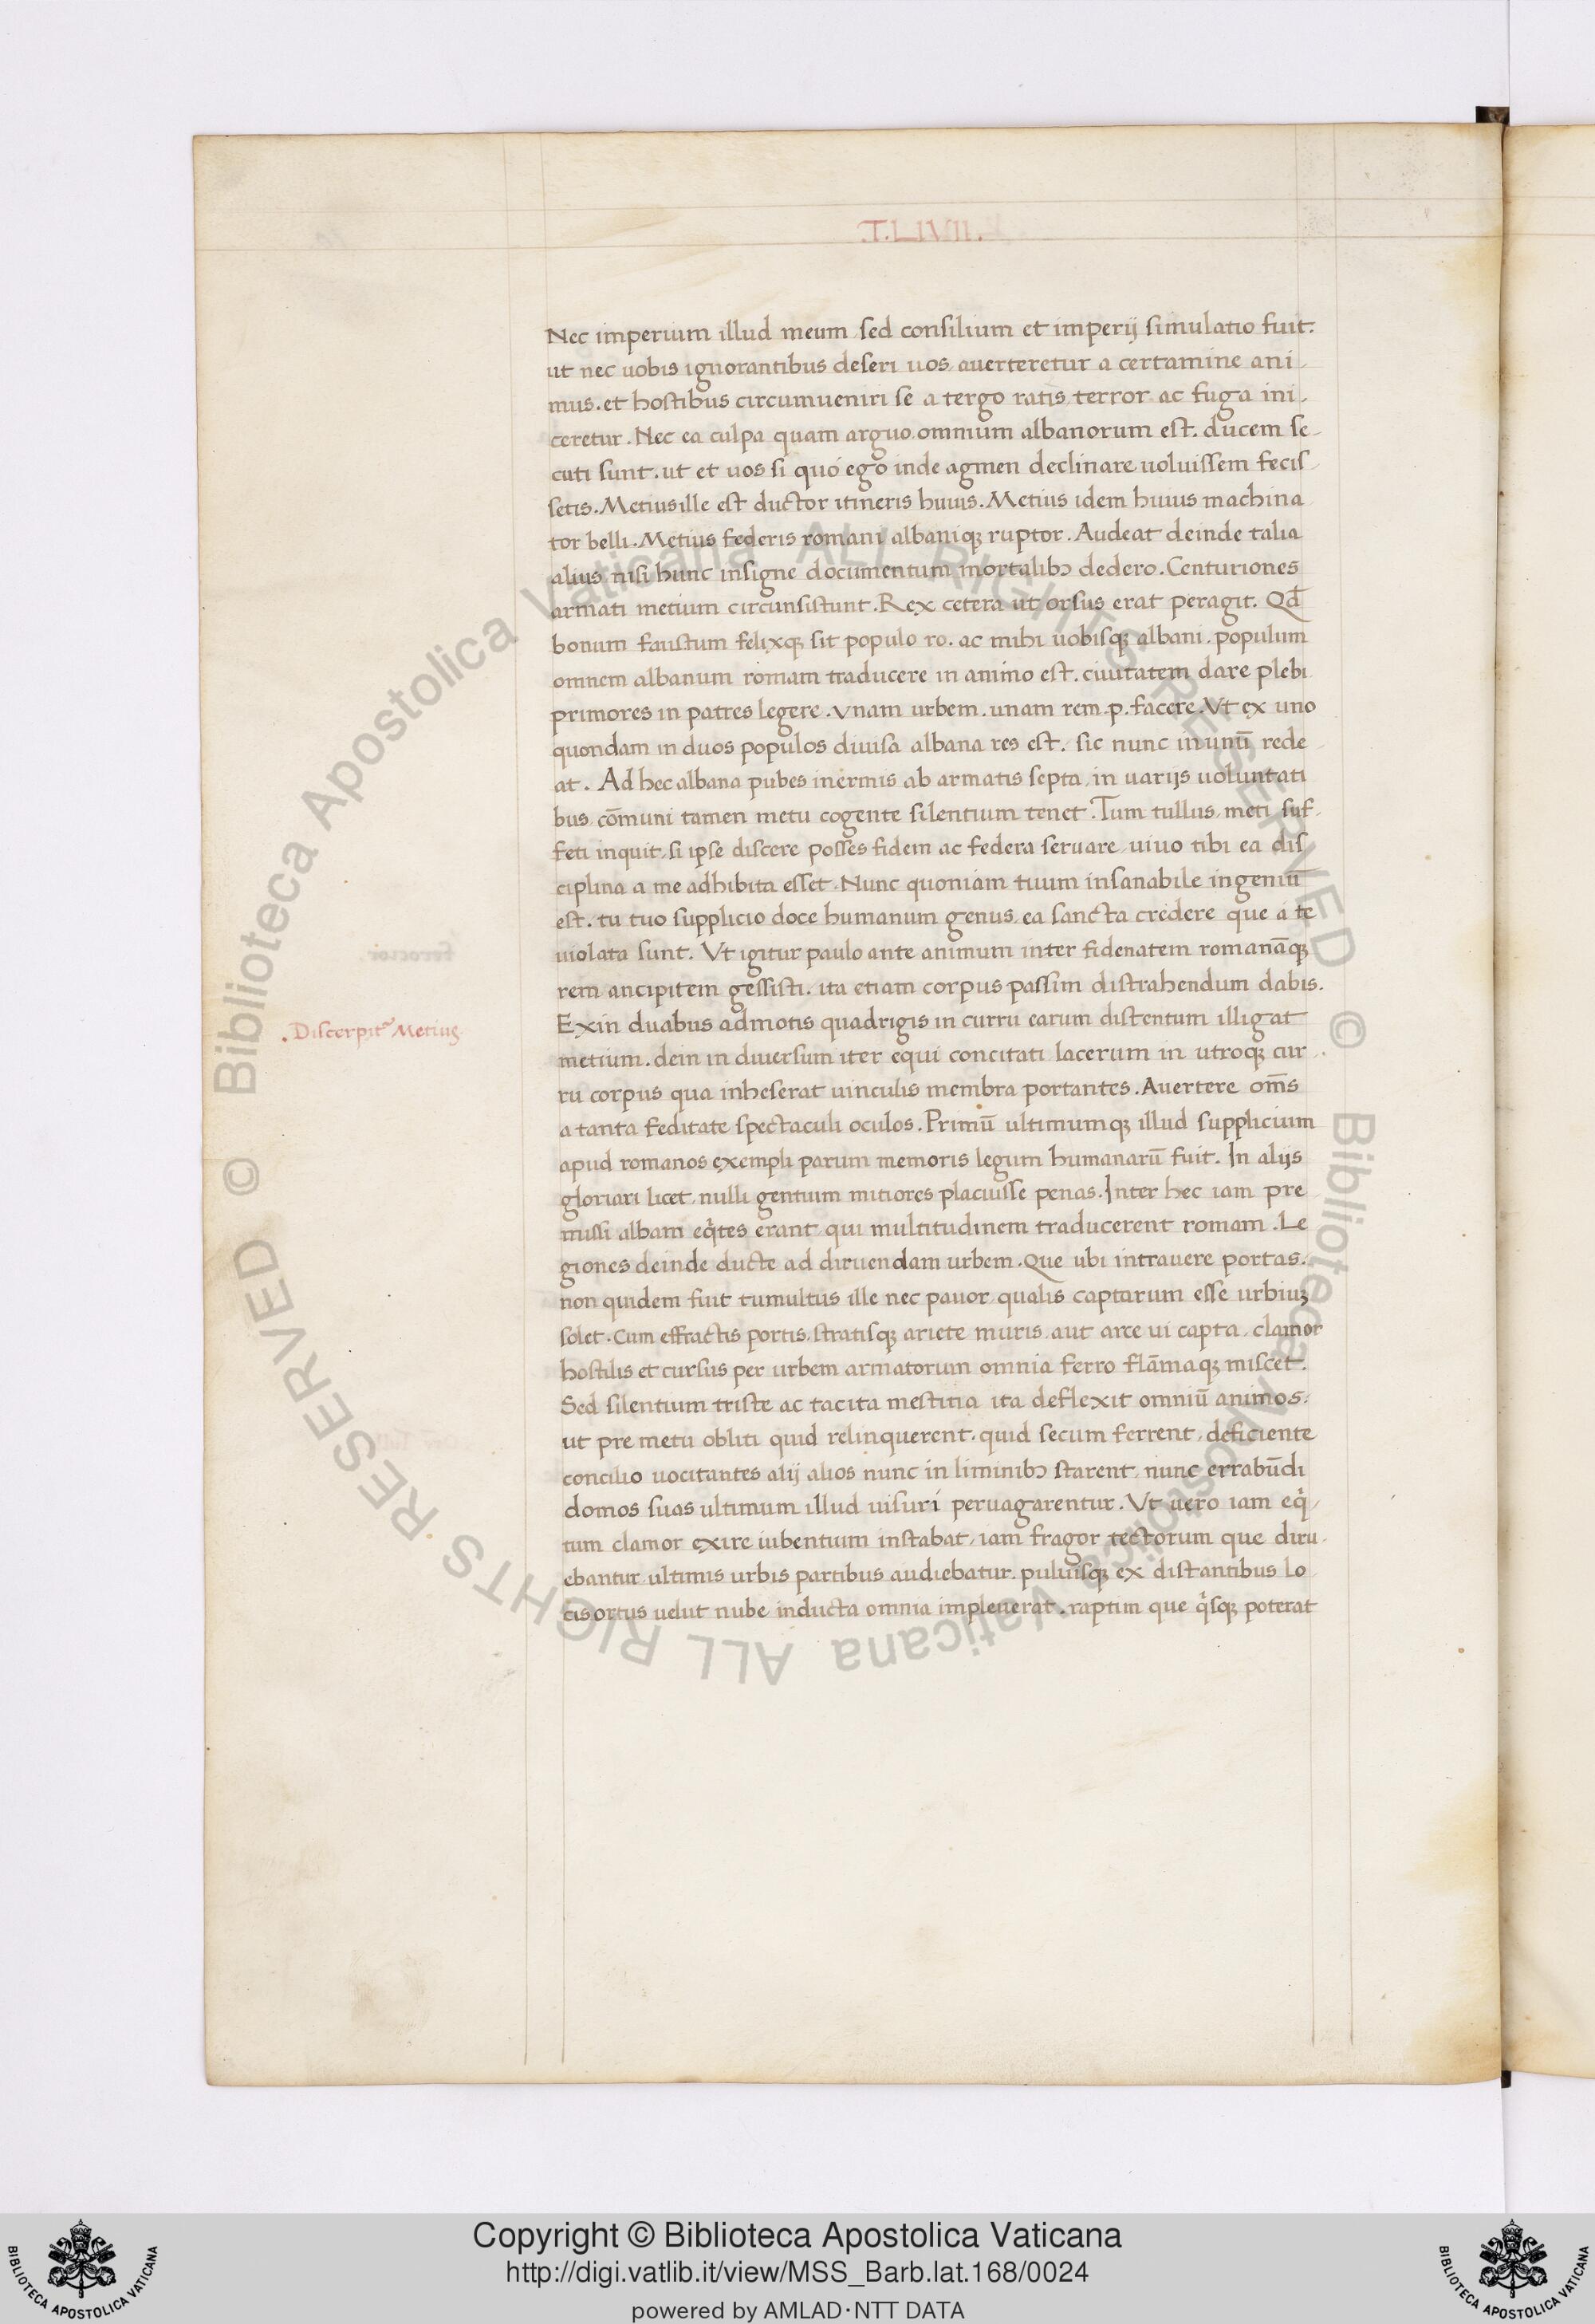 .T.LIVII.
Nec imperium illud meum sed consilium et imperij simulatio fuit.
ut nec uobis ignorantibus deseri uos auerteretur a certamine ani
mus. et hostibus circumueniri se a tergo ratis terror ac fuga ini
ceretur. Nec ea culpa quam arguo omnium albanorum est. ducem se
cuti sunt. ut et uos si quo ego inde agmen declinare uoluissem fecis
setis. Metius ille est ductor itineris huius. Metius idem huius machina
tor belli. Metius federis romani albaniqꝫ ruptor. Audeat deinde talia
alius nisi hunc insigne documentum mortalibꝫ dedero. Centuriones
armati metium circunsistunt. Rex cetera ut orsus erat peragit. Qđ
bonum faustum felixqꝫ sit populo ro. ac mihi uobisqꝫ albani. populum
omnem albanum romam traducere in animo est. ciuitatem dare plebi
primores in patres legere. vnam urbem. unam rem.p. facere. Vt ex uno
quondam in duos populos diuisa albana res est. sic nunc in unū rede
at. Ad hec albana pubes inermis ab armatis septa in uarijs uoluntati
bus cōmuni tamen metu cogente silentium tenet. Tum tullus meti suf
feti inquit si ipse discere posses fidem ac federa seruare uiuo tibi ea dis
ciplina a me adhibita esset. Nunc quoniam tuum insanabile ingeniū
est. tu tuo supplicio doce humanum genus ea sancta credere que a te
uiolata sunt. Vt igitur paulo ante animum inter fidenatem romanāqꝫ
rem ancipitem gessisti. ita etiam corpus passim distrahendum dabis.
.Discerpit᷑ Metius
Exin duabus admotis quadrigis in curru earum distentum illigat
metium. dein in diuersum iter equi concitati lacerum in utroqꝫ cur
ru corpus qua inheserat uinculis membra portantes. Auertere om̄s
a tanta feditate spectaculi oculos. Primū ultimumqꝫ illud supplicium
apud romanos exempli parum memoris legum humanarū fuit. In alijs
gloriari licet nulli gentium mitiores placuisse penas. Inter hec iam pre
missi albam eq̇tes erant qui multitudinem traducerent romam. Le
giones deinde ducte ad diruendam urbem. Que ubi intrauere portas.
non quidem fuit tumultus ille nec pauor qualis captarum esse urbiuꝫ
solet. Cum effractis portis stratisqꝫ ariete muris aut arce ui capta clamor
hostilis et cursus per urbem armatorum omnia ferro flāmaqꝫ miscet.
Sed silentium triste ac tacita mestitia ita deflexit omniū animos.
ut pre metu obliti quid relinquerent. quid secum ferrent deficiente
concilio uocitantes alij alios nunc in liminibꝫ starent nunc errabūdi
domos suas ultimum illud uisuri peruagarentur. Vt uero iam eq̇
tum clamor exire iubentium instabat iam fragor tectorum que diru
ebantur ultimis urbis partibus audiebatur. puluisqꝫ ex distantibus lo
cis ortus uelut nube inducta omnia impleuerat. raptim que q̇sqꝫ poterat
© Biblioteca Apostolica Vaticana ALL RIGHTS RESERVED
© Biblioteca Apostolica Vaticana ALL RIGHTS RESERVED
BIBLIOTECA APOSTOLICA VATICANA
Copyright © Biblioteca Apostolica Vaticana
http://digi.vatlib.it/view/MSS_Barb.lat.168/0024
powered by AMLAD·NTT DATA
BIBLIOTECA APOSTOLICA VATICANA